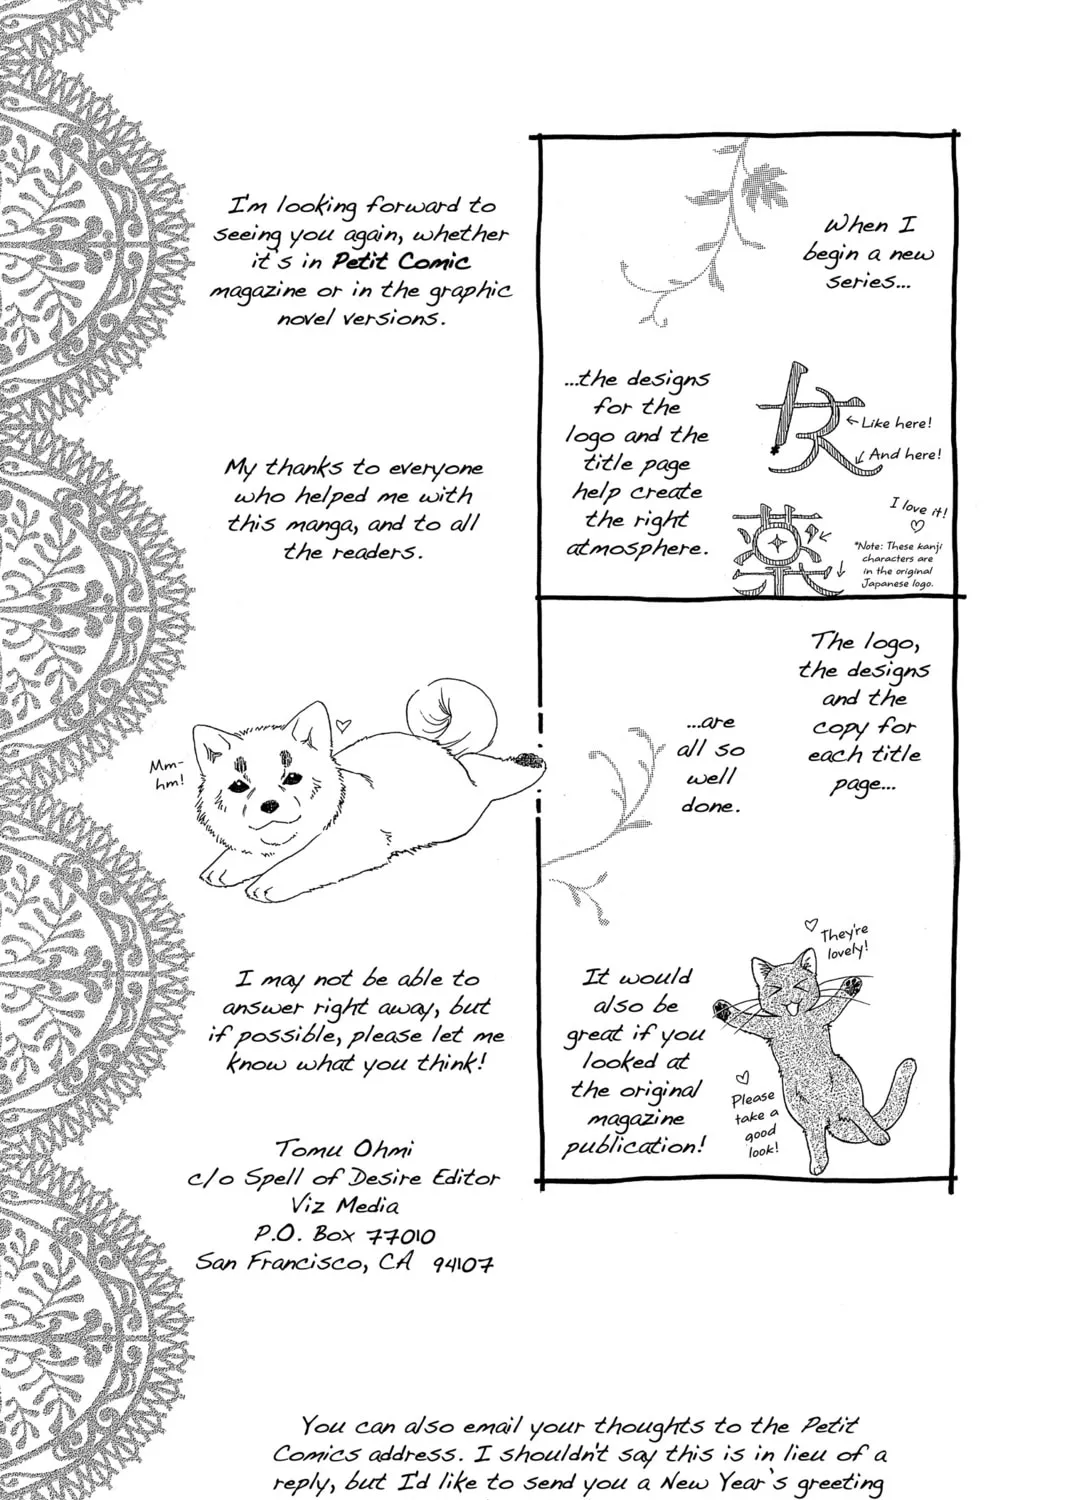 When I
begin a new
series...
...the designs
for the
logo and the
title page
help create
the right
atmosphere.
女
←Like here!
And here!
薬
I love it!
*Note: These kanji
characters are
in the original
Japanese logo.
The logo,
the designs
and the
copy for
each title
page...
...are
all so
well
done.
They're
lovely!
It would
also be
great if you
looked at
the original
magazine
publication!
Please
take a
good
look!
I'm looking forward to
seeing you again, whether
it's in Petit Comic
magazine or in the graphic
novel versions.
My thanks to everyone
who helped me with
this manga, and to all
the readers.
Mm-
hm!
I may not be able to
answer right away, but
if possible, please let me
know what you think!
Tomu Ohmi
c/o Spell of Desire Editor
Viz Media
P.O. Box 77010
San Francisco, CA 94107
You can also email your thoughts to the Petit
Comics address. I shouldn't say this is in lieu of a
reply, but I'd like to send you a New Year's greeting